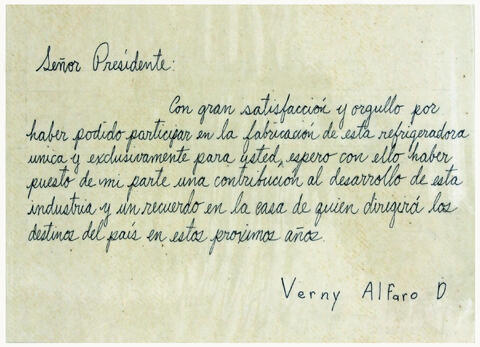 Señor Presidente:
Con gran satisfacción y orgullo por
haber podido participar en la fabricacion de esta refrigeradora
unica y exclusivamente para usted, espero con ello haber
puesto de mi parte una contribución al desarrollo de esta
industria y un recuerdo en la casa de quien dirigirá los
destinos del país en estos proximos años.
Verny Alfaro D